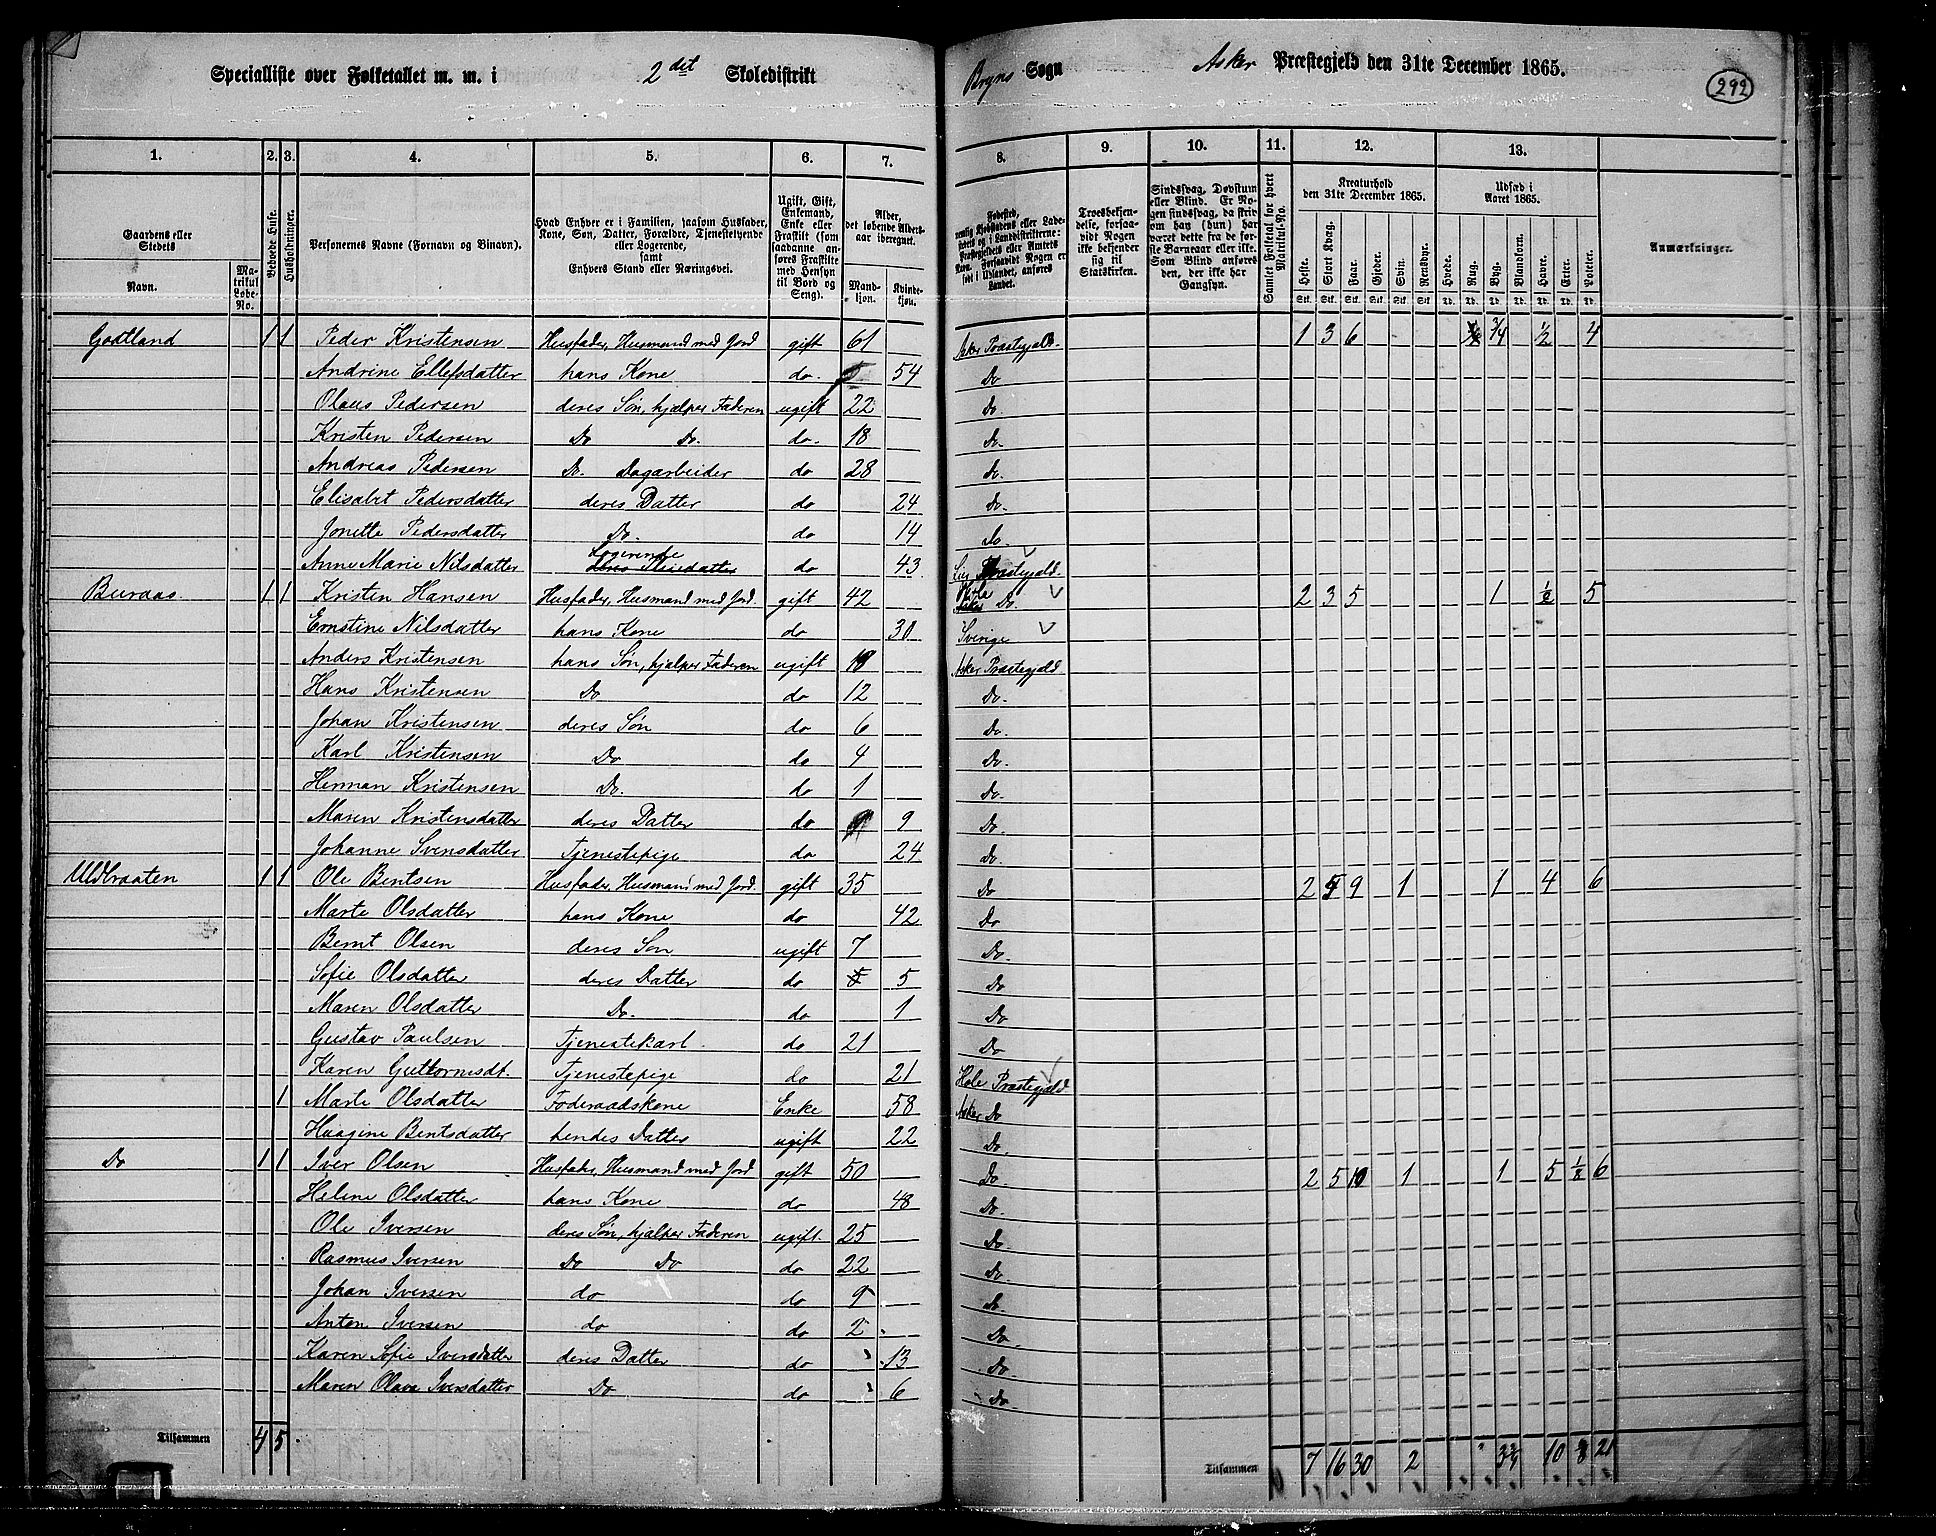 Specialliste over Folketallet m. m. i 2det Skoledistrikt Bryns Sogn Asker Præstegjeld den 31te December 1865.
292
1. 2. 3. 4. 5. 6. 7. 8. 9. 10. 11. 12. 13.
Gaardens eller Stedets Navn.
Matrikul Løbe-No.
Beboede Huse.
Husholdninger.
Personernes Navne (Fornavn og Binavn).
Hvad Enhver er i Familien, saasom Husfader, Kone, Søn, Datter, Forældre, Tjenestetyende eller Logerende, samt Enhvers Stand eller Næringsvei.
Ugift, Gift, Enkemand, Enke eller Fraskilt (som saadanne anføres Fraskilte med Hensyn til Bord og Seng).
Alder, det løbende Aldersaar iberegnet.
Mandkjøn. Kvindekjøn.
Fødested, nemlig Kjøbstadens eller Ladestedets og i Landdistrikterne: Præstegjeldets eller Amtets Navn. Forsaavidt Nogen er født i Udlandet, anføres Landet.
Troesbekjendelse, forsaavidt Nogen ikke bekjender sig til Statskirken.
Sindssvag, Døvstum eller Blind. Er Nogen sindssvag, da skriv om han (hun) har været dette fra de første Barneaar eller ikke. Som Blind anføres den, der ikke har Gangsyn.
Samlet Folketal for hvert Matrikul-No.
Kreaturhold den 31te December 1865.
Heste. Stort Kvæg. Faar. Gjeder. Svin. Rensdyr.
Udsæd i Aaret 1865.
Hvede. Rug. Byg. Blandkorn. Havre. Erter. Poteter.
Anmærkninger.
Godtland 1 1 Peder Kristensen Husfader, Husmand med Jord gift 61 Asker Præstegjeld. 1 3 6 3/4 1/2 4
Andrine Ellefsdatter hans Kone do. 54 Do
Olaus Pedersen deres Søn, hjælper Faderen ugift 22 Do.
Kristen Pedersen Do Do. do. 18 Do.
Andreas Pedersen Do. Dagarbeider do 28 Do.
Elisabet Pedersdatter deres Datter do 24 Do.
Jonette Pedersdatter Do. do 14 Do.
Anne Marie Nilsdatter Logerende do 43 Lier Præstegjeld.
Buraas 1 1 Kristen Hansen Husfader, Husmand med Jord. gift 42 Do. 2 3 5 1 1/2 5
Ernstine Nilsdatter hans Kone do 30 Sverige
Anders Kristensen hans Søn, hjælper Faderen ugift Asker Præstegjeld
Hans Kristensen Do do 12 Do.
Johan Kristensen deres Søn do 6 Do.
Karl Kristensen Do do 4 Do.
Herman Kristensen Do. do 1 Do.
Maren Kristensdatter deres Datter do 9 Do.
Johanne Svensdatter Tjenestepige do 24 Do
Uldbraaten 1 1 Ole Bentsen Husfader, Husmand med Jord. gift 35 Do 2 9 1 1 4 6
Marte Olsdatter hans Kone do 42 Do
Bernt Olsen deres Søn ugift 7 Do.
Sofie Olsdatter deres Datter do 5 Do
Maren Olsdatter Do. do 1 Do
Gustav Paulsen Tjenestekarl. do 21 Do
Karen Guttormsdt. Tjenestepige do 21 Hole Præstegjeld
1 Marte Olsdatter Føderaadskone Enke 58 Asker Do
Haagine Bentsdatter hendes Datter ugift 22 Do.
Do 1 1 Iver Olsen Husfader, Husmand med Jord gift 50 Do. 2 5 10 1 1 5 1/2 6
Helene Olsdatter hans Kone do 48 Do.
Ole Iversen deres Søn, hjælper Faderen ugift. 25 Do.
Rasmus Iversen Do Do do 22 Do.
Johan Iversen do do 9 Do.
Anton Iversen do do 2 Do.
Karen Sofie Iversdatter deres Datter do 13 Do.
Maren Olava Iversdatter Do do 6 Do.
Tilsammen 4 5 Tilsammen 7 16 30 2 3 3/4 10 21